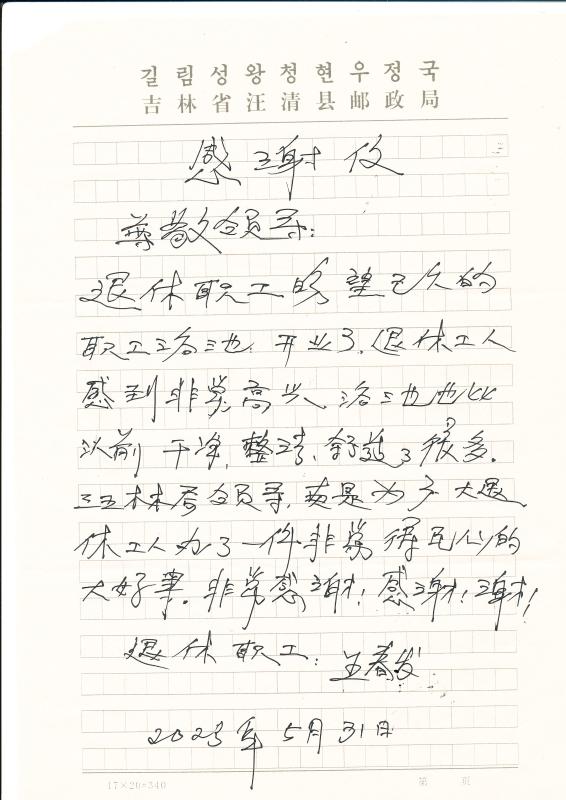 길림성왕청현우정국
吉林省汪清县邮政局
感谢信
尊敬领导:
退休职工盼望已久的
职工浴池 开业了.退休工人
感到非常高兴,浴池也比
以前 干净,整洁,舒适了很多.
领导,真是为广大退
休工人办了一件非常得民心的
大好事.非常感谢!感谢!谢!
退休职工: 王春发
2023年5月31日
17×20=340 第 页